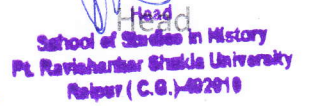 Head
Head
School of Studies in History
Pt. Ravishankar Shukla University
Raipur ( C.G.)-492010